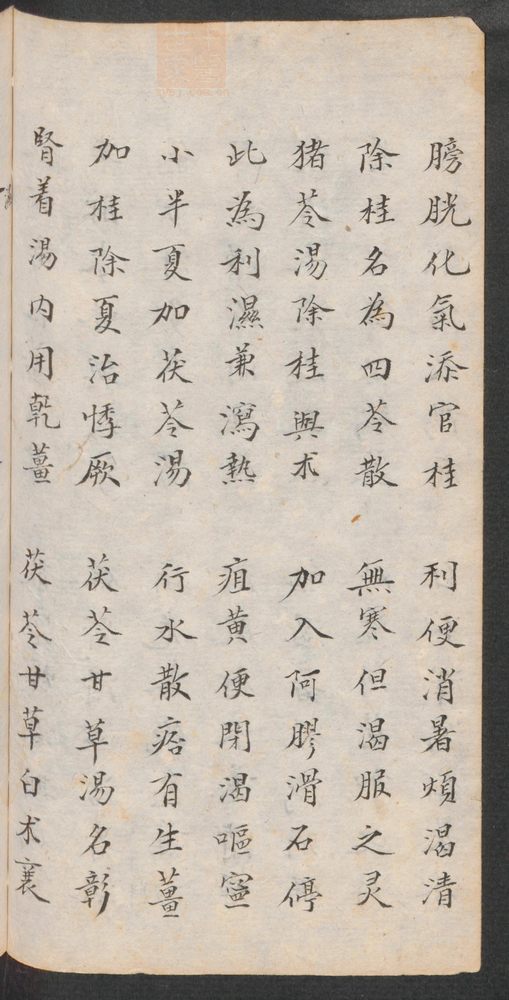 膀胱化氣添官桂 利便消暑煩渴清
除桂名為四苓散 無寒但渴服之灵
猪苓湯除桂與术 加入阿膠滑石停
此為利濕兼瀉熱 疸黃便閉渴嘔寧
小半夏加茯苓湯 行水散痞有生薑
加桂除夏治悸厥 茯苓甘草湯名彰
腎着湯內用乾薑 茯苓甘草白术襄